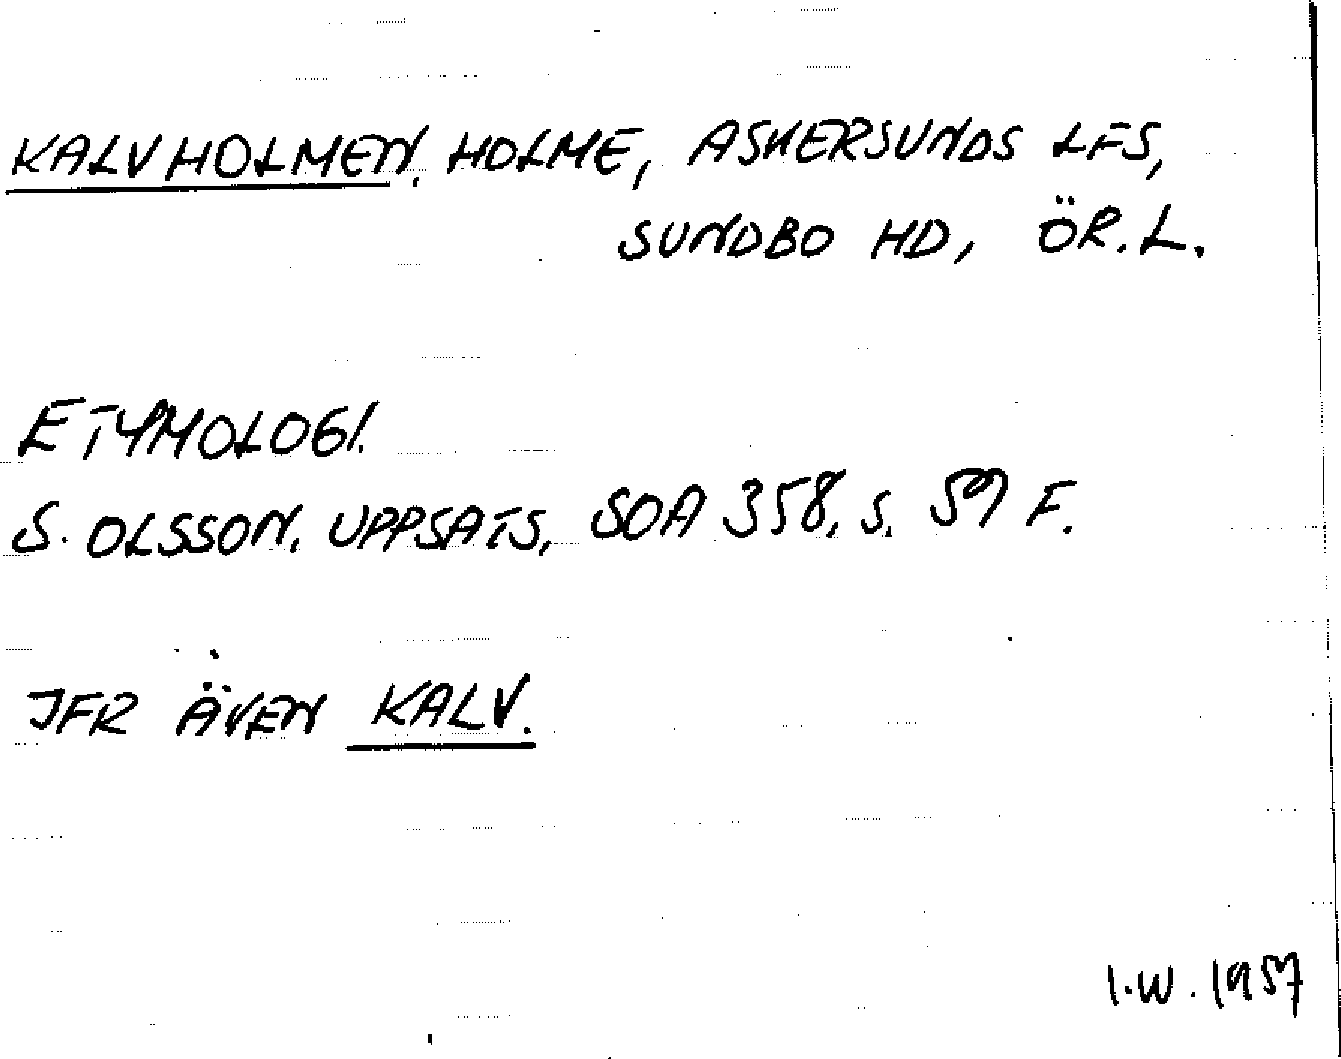 KALVHOLMEN. HOLME, ASKERSUNDS LFS,
SUNDBO HD, ÖR.L.
ETYMOLOGI.
S. OLSSON, UPPSATS, SOA 358, S. 59 F.
JFR ÄVEN KALV.
I.W. 1957